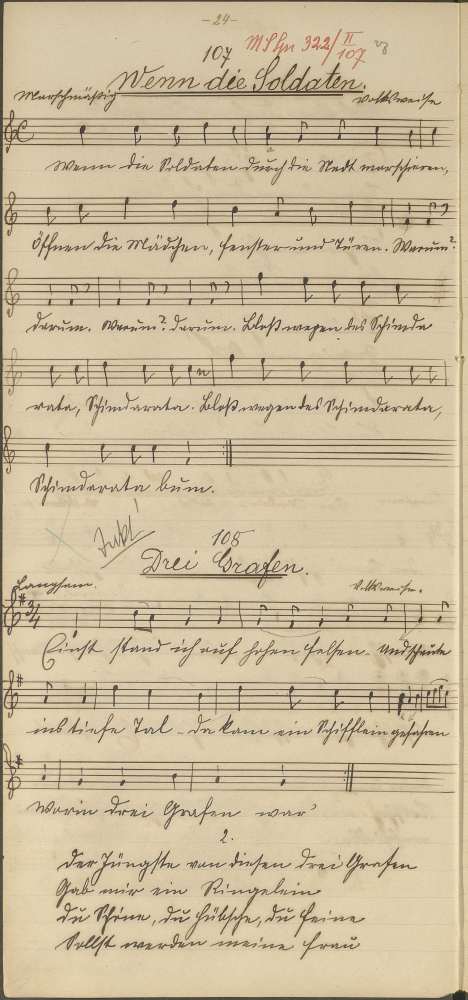 -24-
107
II
107
Wenn die Soldaten.
Marschmäßig
Volksweise
Wenn die Soldaten durch die Stadt marschieren,
öffnen die Mädchen, Fenster und Türen. Warum?
darum. Warum? darum. Bloß wegen des Schimda
rata, Schimdarata. Bloß wegen des Schimdarata,
Schimdarata bum.
108
Drei Grafen.
Langsam.
Volksweise.
3/4
Einst stand ich auf hohen Felsen - und schaute
ins tiefe Tal - da kam ein Schifflein gefahren
worin drei Grafen war'
2.
Der Jüngste von diesen drei Grafen
Gab mir ein Ringelein
Du Schöne, du Hübsche, du Feine
Sollst werden meine Frau